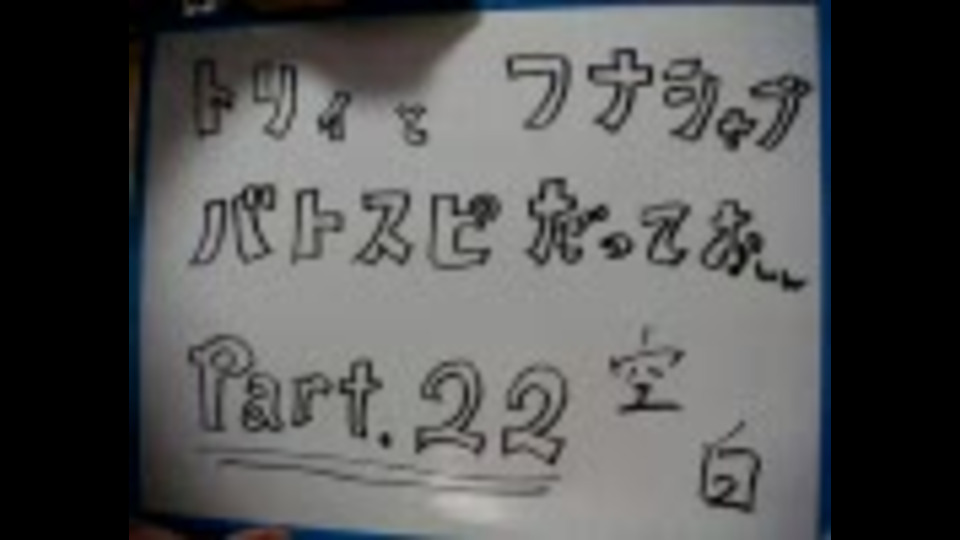 トリィと フナシャブ
バトスピだってお!!
Part.22 空
白